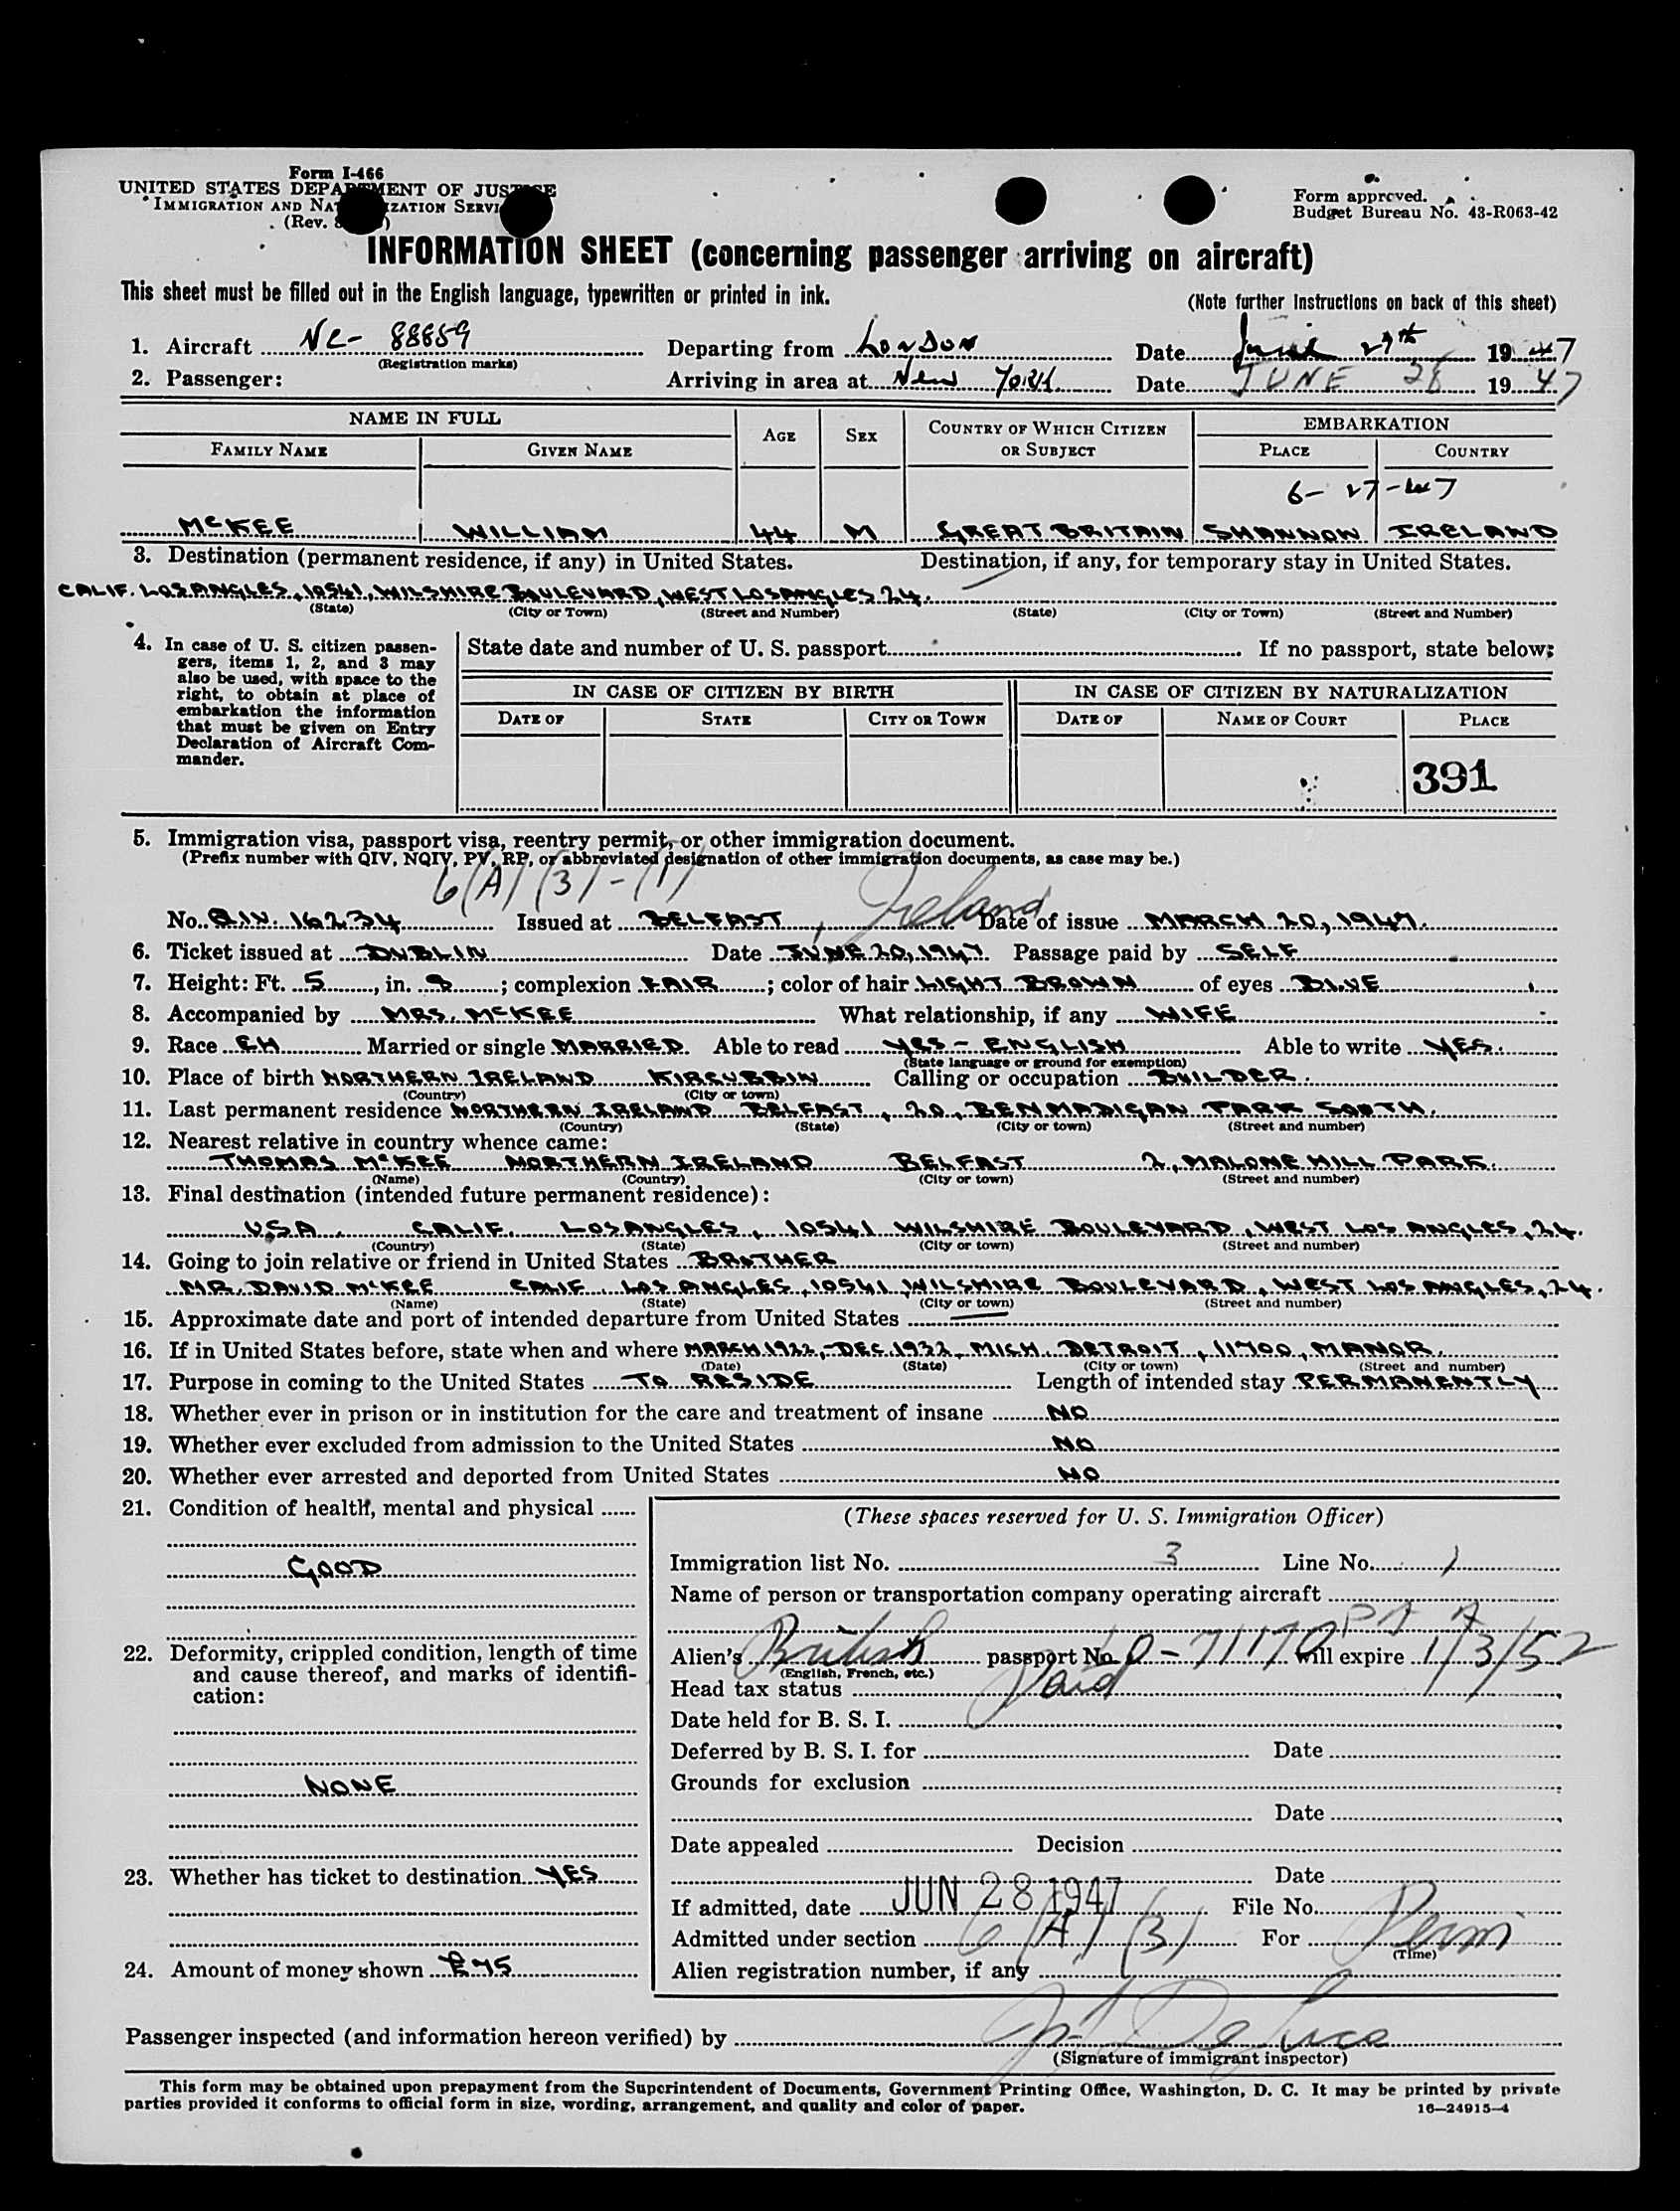 Form I-466
UNITED STATES DEPARTMENT OF JUSTICE
IMMIGRATION AND NATURALIZATION SERVICE
(Rev.
Form approved.
Budget Bureau No. 43-R063-42
INFORMATION SHEET (concerning passenger arriving on aircraft)
This sheet must be filled out in the English language, typewritten or printed in ink.
(Note further instructions on back of this sheet)
1. Aircraft NC- 88859 Departing from London Date June 27th 1947
(Registration marks)
2. Passenger: Arriving in area at New York Date JUNE 28 1947
NAME IN FULL AGE SEX COUNTRY OF WHICH CITIZEN OR SUBJECT EMBARKATION
FAMILY NAME GIVEN NAME PLACE COUNTRY
6-27-47
McKEE WILLIAM 44 M GREAT BRITAIN SHANNON IRELAND
3. Destination (permanent residence, if any) in United States. Destination, if any, for temporary stay in United States.
CALIF. LOS ANGLES, 10541, WILSHIRE BOULEVARD, WEST LOS ANGLES 24.
(State) (City or Town) (Street and Number) (State) (City or Town) (Street and Number)
4. In case of U. S. citizen passen-
gers, items 1, 2, and 3 may
also be used, with space to the
right, to obtain at place of
embarkation the information
that must be given on Entry
Declaration of Aircraft Com-
mander.
State date and number of U. S. passport If no passport, state below:
IN CASE OF CITIZEN BY BIRTH IN CASE OF CITIZEN BY NATURALIZATION
DATE OF STATE CITY OR TOWN DATE OF NAME OF COURT PLACE
391
5. Immigration visa, passport visa, reentry permit, or other immigration document.
(Prefix number with QIV, NQIV, PV, RP, or abbreviated designation of other immigration documents, as case may be.)
6(A) (3) - (1)
No. Q.I.V. 16234 Issued at BELFAST, Ireland Date of issue MARCH 20, 1947.
6. Ticket issued at DUBLIN Date JUNE 20, 1947. Passage paid by SELF
7. Height: Ft. 5, in. 8; complexion FAIR; color of hair LIGHT BROWN of eyes BLUE
8. Accompanied by MRS. McKEE What relationship, if any WIFE
9. Race EH Married or single MARRIED. Able to read YES - ENGLISH Able to write YES.
(State language or ground for exemption)
10. Place of birth NORTHERN IRELAND KIRCUBBIN Calling or occupation BUILDER.
(Country) (City or town)
11. Last permanent residence NORTHERN IRELAND BELFAST, 20, BENMADIGAN PARK SOUTH.
(Country) (State) (City or town) (Street and number)
12. Nearest relative in country whence came:
THOMAS McKEE NORTHERN IRELAND BELFAST 2, MALONE HILL PARK.
(Name) (Country) (City or town) (Street and number)
13. Final destination (intended future permanent residence):
USA. CALIF. LOS ANGLES, 10541 WILSHIRE BOULEVARD, WEST LOS ANGLES, 24.
(Country) (State) (City or town) (Street and number)
14. Going to join relative or friend in United States BROTHER
MR. DAVID McKEE CALIF. LOS ANGLES, 10541 WILSHIRE BOULEVARD, WEST LOS ANGLES, 24.
(Name) (State) (City or town) (Street and number)
15. Approximate date and port of intended departure from United States —
16. If in United States before, state when and where MARCH 1922, - DEC. 1932, MICH. DETROIT, 11700, MANOR.
(Date) (State) (City or town) (Street and number)
17. Purpose in coming to the United States TO RESIDE Length of intended stay PERMANENTLY
18. Whether ever in prison or in institution for the care and treatment of insane NO
19. Whether ever excluded from admission to the United States NO
20. Whether ever arrested and deported from United States NO
21. Condition of health, mental and physical
GOOD
22. Deformity, crippled condition, length of time
and cause thereof, and marks of identifi-
cation:
NONE
23. Whether has ticket to destination YES
24. Amount of money shown £75
(These spaces reserved for U. S. Immigration Officer)
Immigration list No. 3 Line No. 1
Name of person or transportation company operating aircraft
P A A
Alien's British passport No. will expire 1/3/52
(English, French, etc.)
Head tax status Paid
Date held for B. S. I.
Deferred by B. S. I. for Date
Grounds for exclusion
Date
Date appealed Decision
Date
If admitted, date JUN 28 1947 File No.
Admitted under section 6(A) (3) For Perm
(Time)
Alien registration number, if any
Passenger inspected (and information hereon verified) by
(Signature of immigrant inspector)
This form may be obtained upon prepayment from the Superintendent of Documents, Government Printing Office, Washington, D. C. It may be printed by private
parties provided it conforms to official form in size, wording, arrangement, and quality and color of paper.
16—24915-4